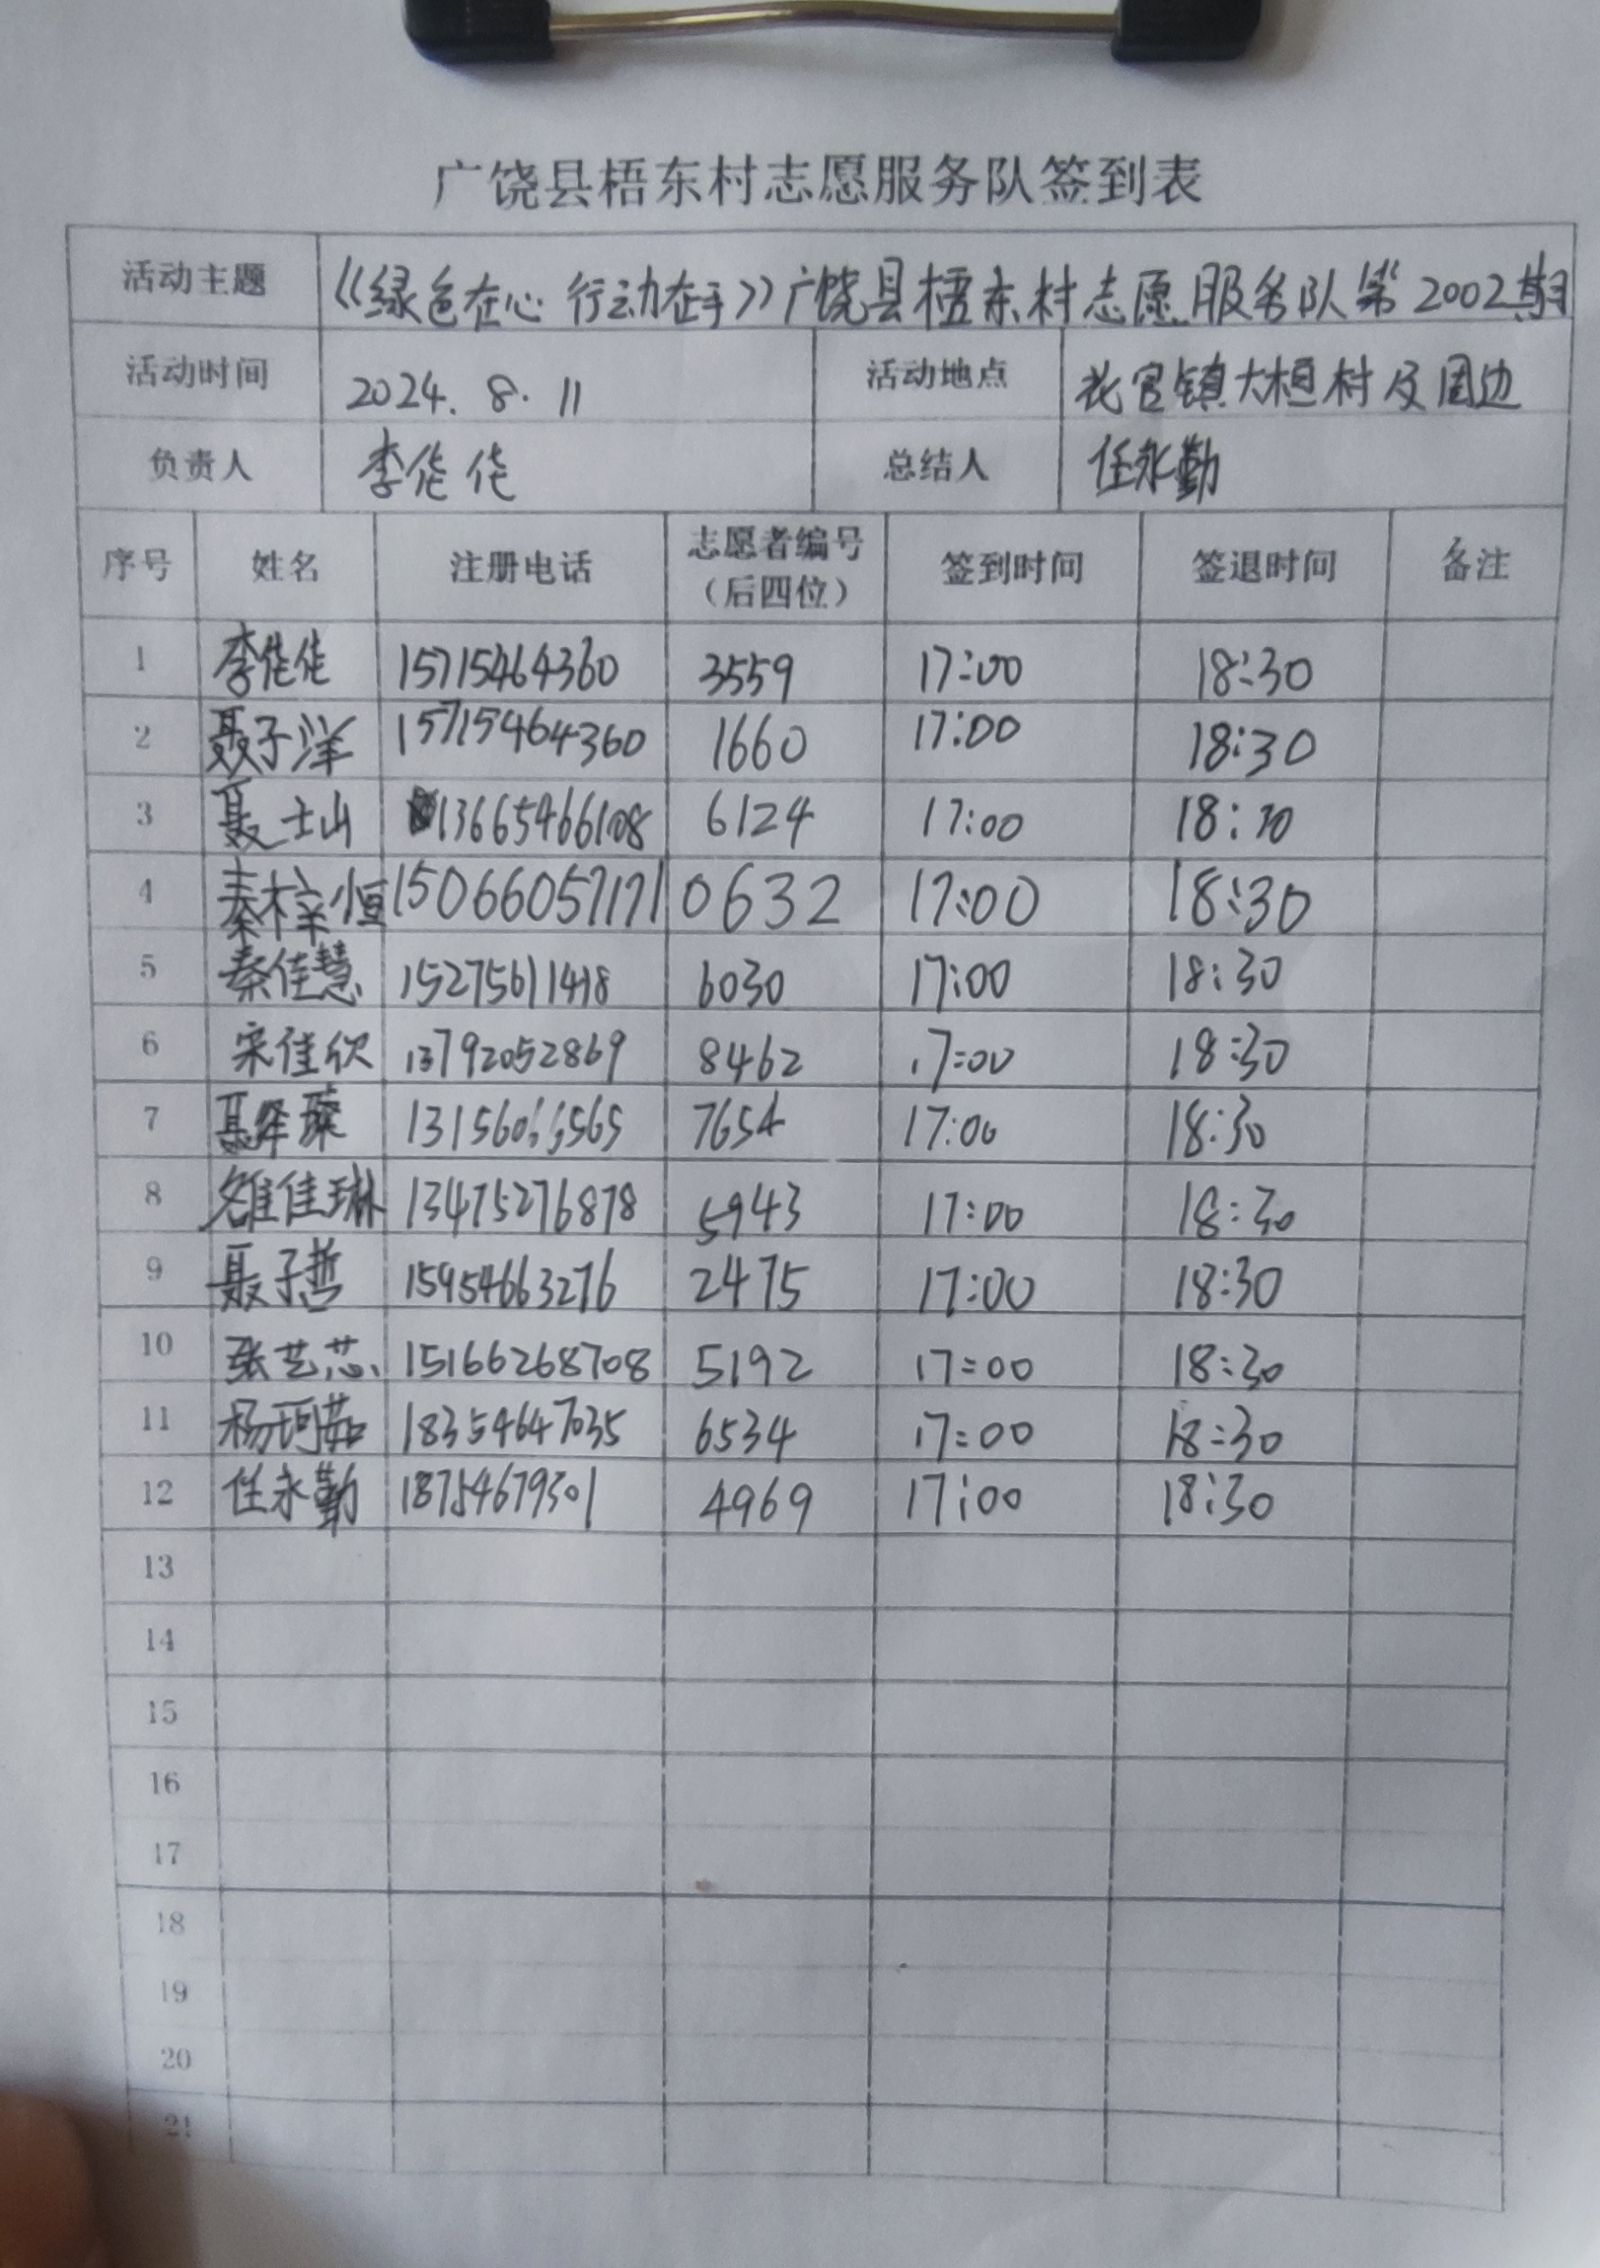 广饶县梧东村志愿服务队签到表
活动主题 《绿色在心 行动在手》广饶县梧东村志愿服务队第2002期
活动时间 2024.8.11 活动地点 花官镇大桓村及周边
负责人 李佳佳 总结人 任永勤
序号 姓名 注册电话 志愿者编号（后四位） 签到时间 签退时间 备注
1 李佳佳 15715464360 3559 17:00 18:30
2 聂子洋 15715464360 1660 17:00 18:30
3 聂士山 13665466108 6124 17:00 18:30
4 秦梓恒 15066057171 0632 17:00 18:30
5 秦佳慧 15275611418 6030 17:00 18:30
6 宋佳欣 13792052869 8462 17:00 18:30
7 聂绎璨 13156066565 7654 17:00 18:30
8 雒佳琳 13475276878 5943 17:00 18:30
9 聂子哲 15954663276 2475 17:00 18:30
10 张艺芯 15166268708 5192 17:00 18:30
11 杨珂茹 18354647035 6534 17:00 18:30
12 任永勤 18754679301 4969 17:00 18:30
13
14
15
16
17
18
19
20
21